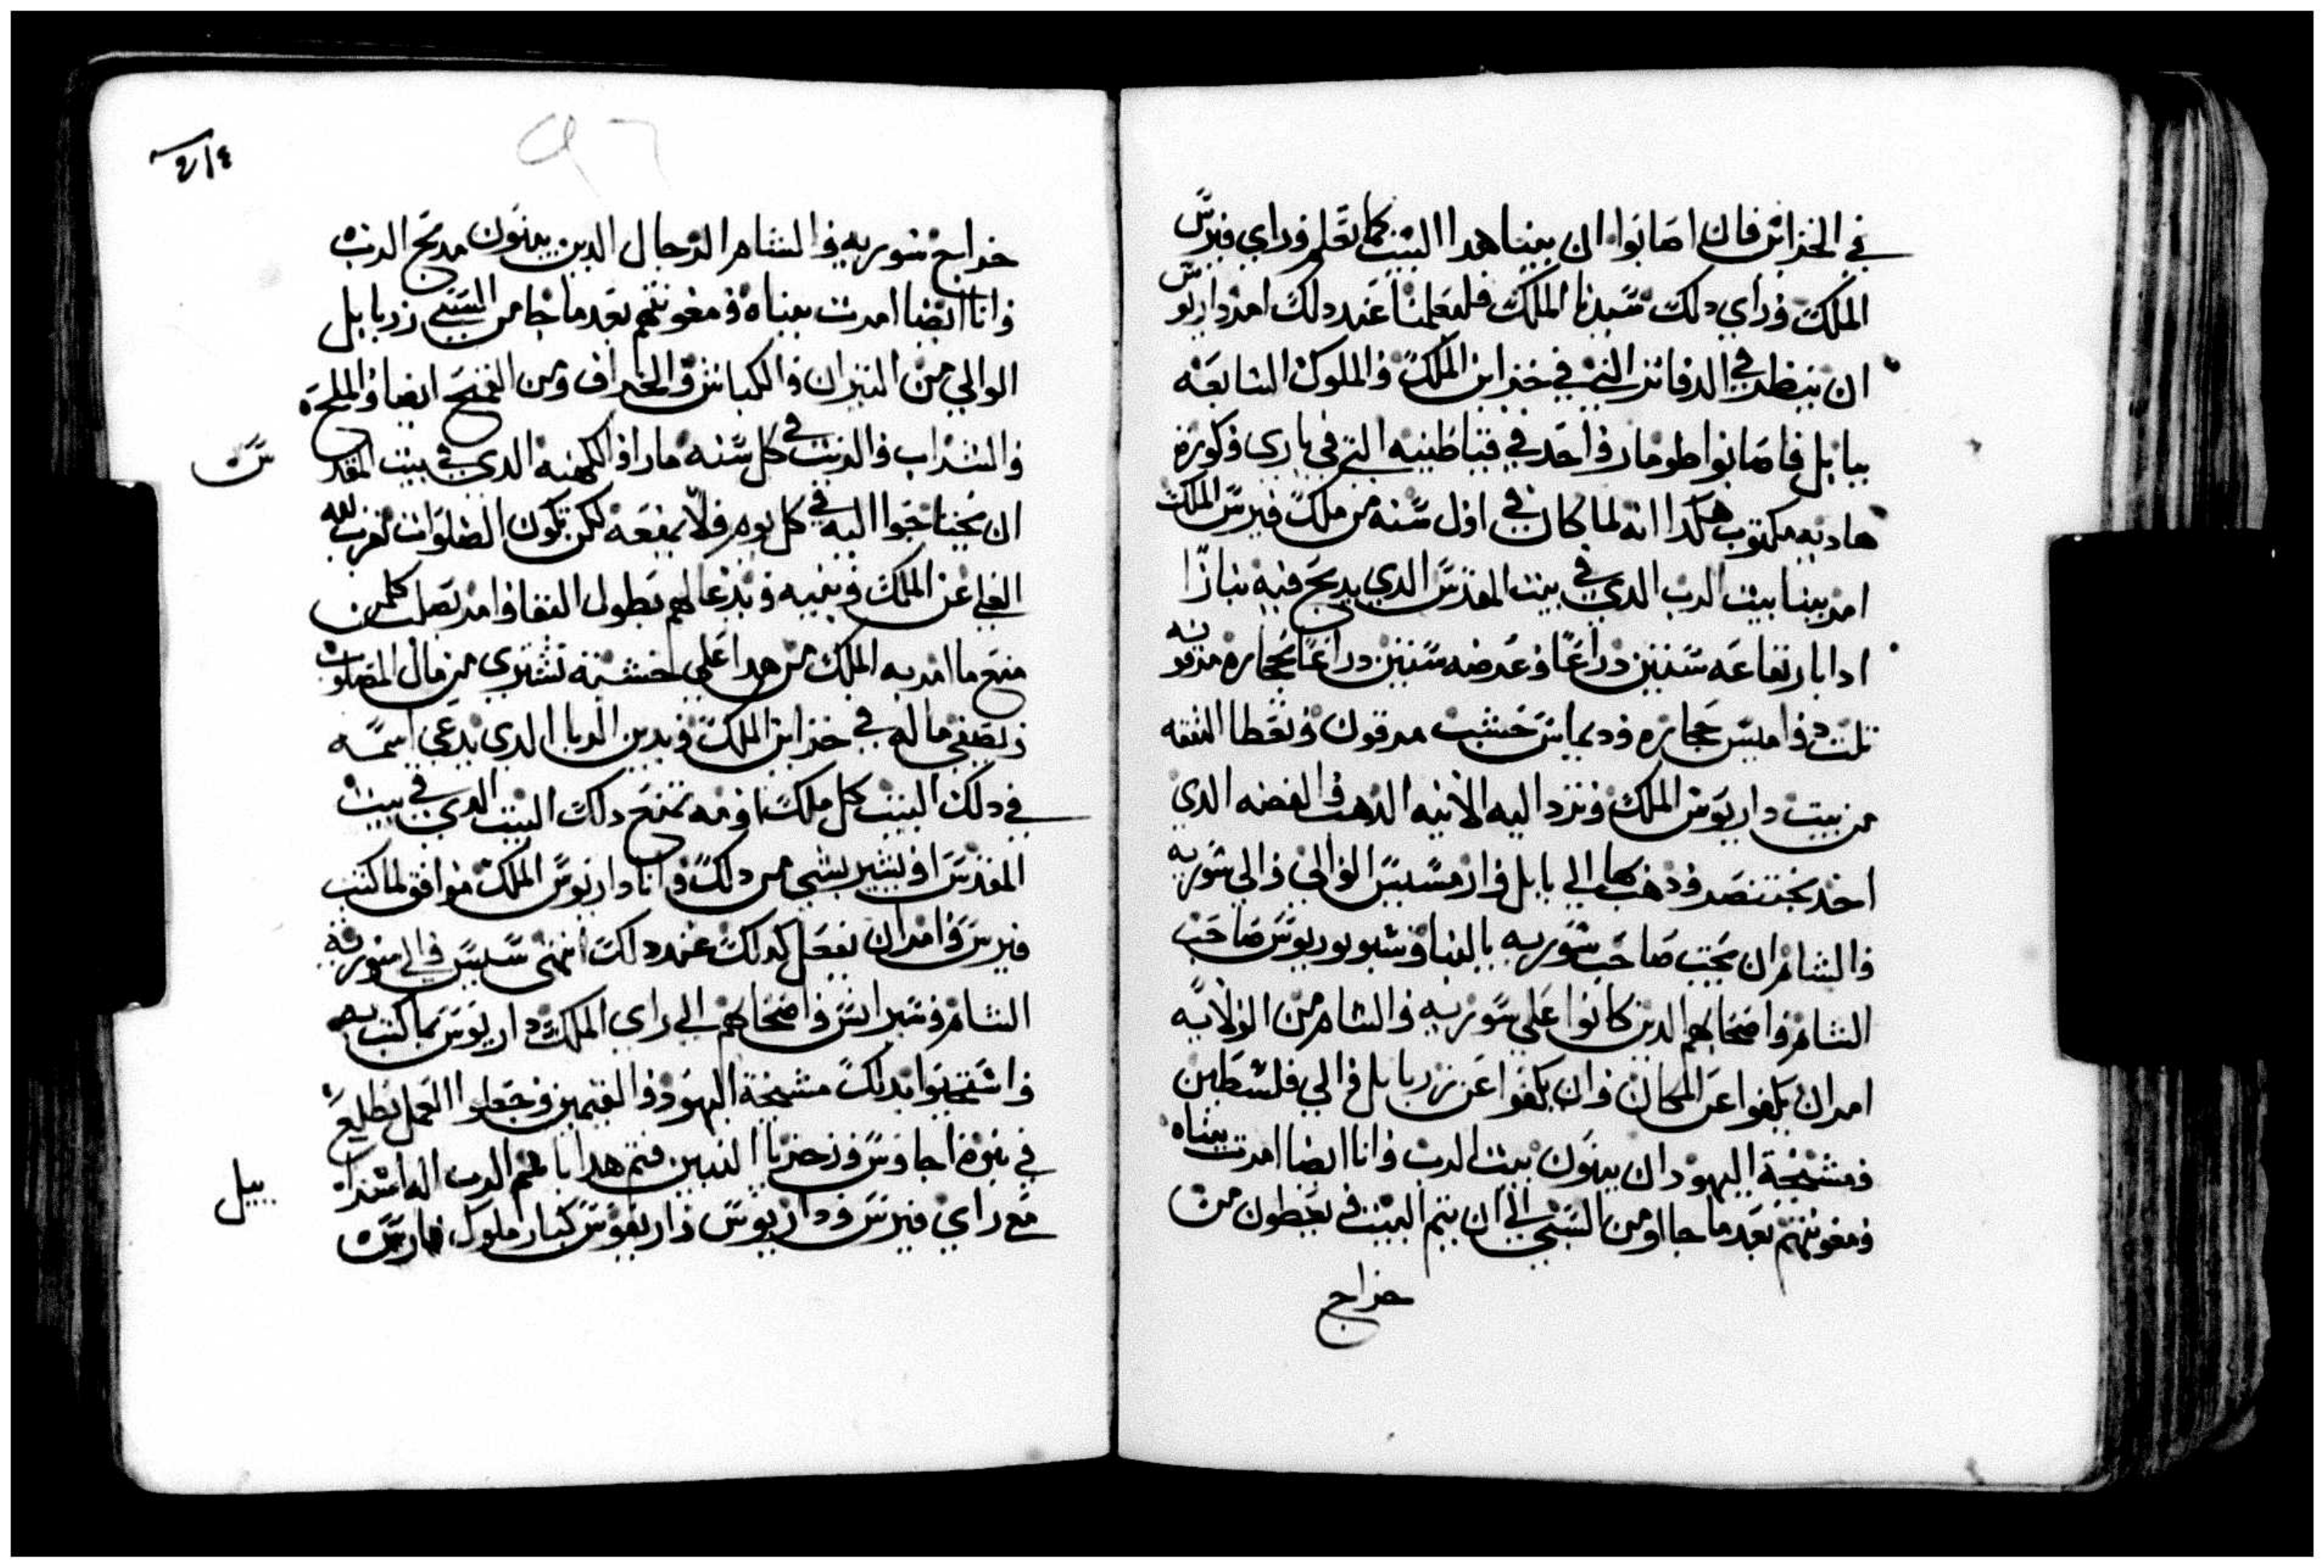 في الخزاين فان اصابوا ان بينا هدا البيت كما تعلم وراي فيرس
الملك وراي دلك سيدنا الملك فليعلمنا عند دلك امر داريوس
ان ينظر في الدفاتر التي في خزاين الملك والملوك السابعه
ببابل فاصابوا طومار واحد في قباطنيه التي في بارى وكورة
هاديه مكتوب هكدا انه لما كان في اول سنه من ملك فيرس الملك
امر ببنا بيت الرب الدي في بيت المقدس الدي يدبح فيه نيارًا
ادا بارتفاعه ستين دراعًا وعرضه ستين دراعًا بحجاره مرقونه
تلت دواميس حجاره وديماس خشب مرقون وتعطا النفقه
من بيت داريوس الملك وترد اليه الانيه الدهب والفضه الدي
اخد بختنصر ودهب بها الي بابل وان سيسيس الوالي والي سوريه
والشام ان يجتب صاحب سوريه بالبنا وشبوبوريوس صاحب
الشام واصحابهم الدين كانوا علي سوريه والشام من الولايه
امر ان يكفوا عن المكان وان يكفوا عن زربابل والي فلسطين
ومشيخة اليهود ان يبنون بيت الرب وانا ايضا امرت ببناه
ومعونتهم بعد ما جااو من السبي الي ان يتم البيت ويعطون من
خراج
٤١٤
خراج سوريه والشام الرجال الدين يبنون مدبح الرب
وانا ايضا امرت ببناه ومعونتهم بعد ما جا من السبي زربابل
الوالي من التيران والكباش والخراف ومن القمح ايضا والملح
والشراب والزيت في كل سنه ما راوا الكهنه الدي في بيت المقد
س
ان يحتاجوا اليه في كل يوم ولا يمنعه لكن تكون الصلوات تقرب لله
العلي عن الملك وبنيه ويدعا لهم بطول البقا وامر بصلب كلمن
منع ما امر به الملك من هدا علي خشبة تشترى من مال المصلوب
ويصفي ماله في خزاين الملك ويدين الرب الدي يدعي اسمه
في دلك البيت كل ملك او مه تمنع دلك البيت الدي في بيت
المقدس او يشير بشي من دلك وانا داريوس الملك موافق لما كتب
فيرس وامر ان يفعل كدلك عند دلك انتهى سيسيس والي سوريه
الشام وشبراتس واصحابهم الي راي الملك داريوس بما كتب به
واشتحبوا بدلك مشيخة اليهود والقيمين وجعلوا العمل يطلع
في بنوة اجاوس وزخريا النبيين فتم هدا بامر الرب اله اسرا
ييل
مع راي فيرس وداريوس واريقوس كبار ملوك فارس